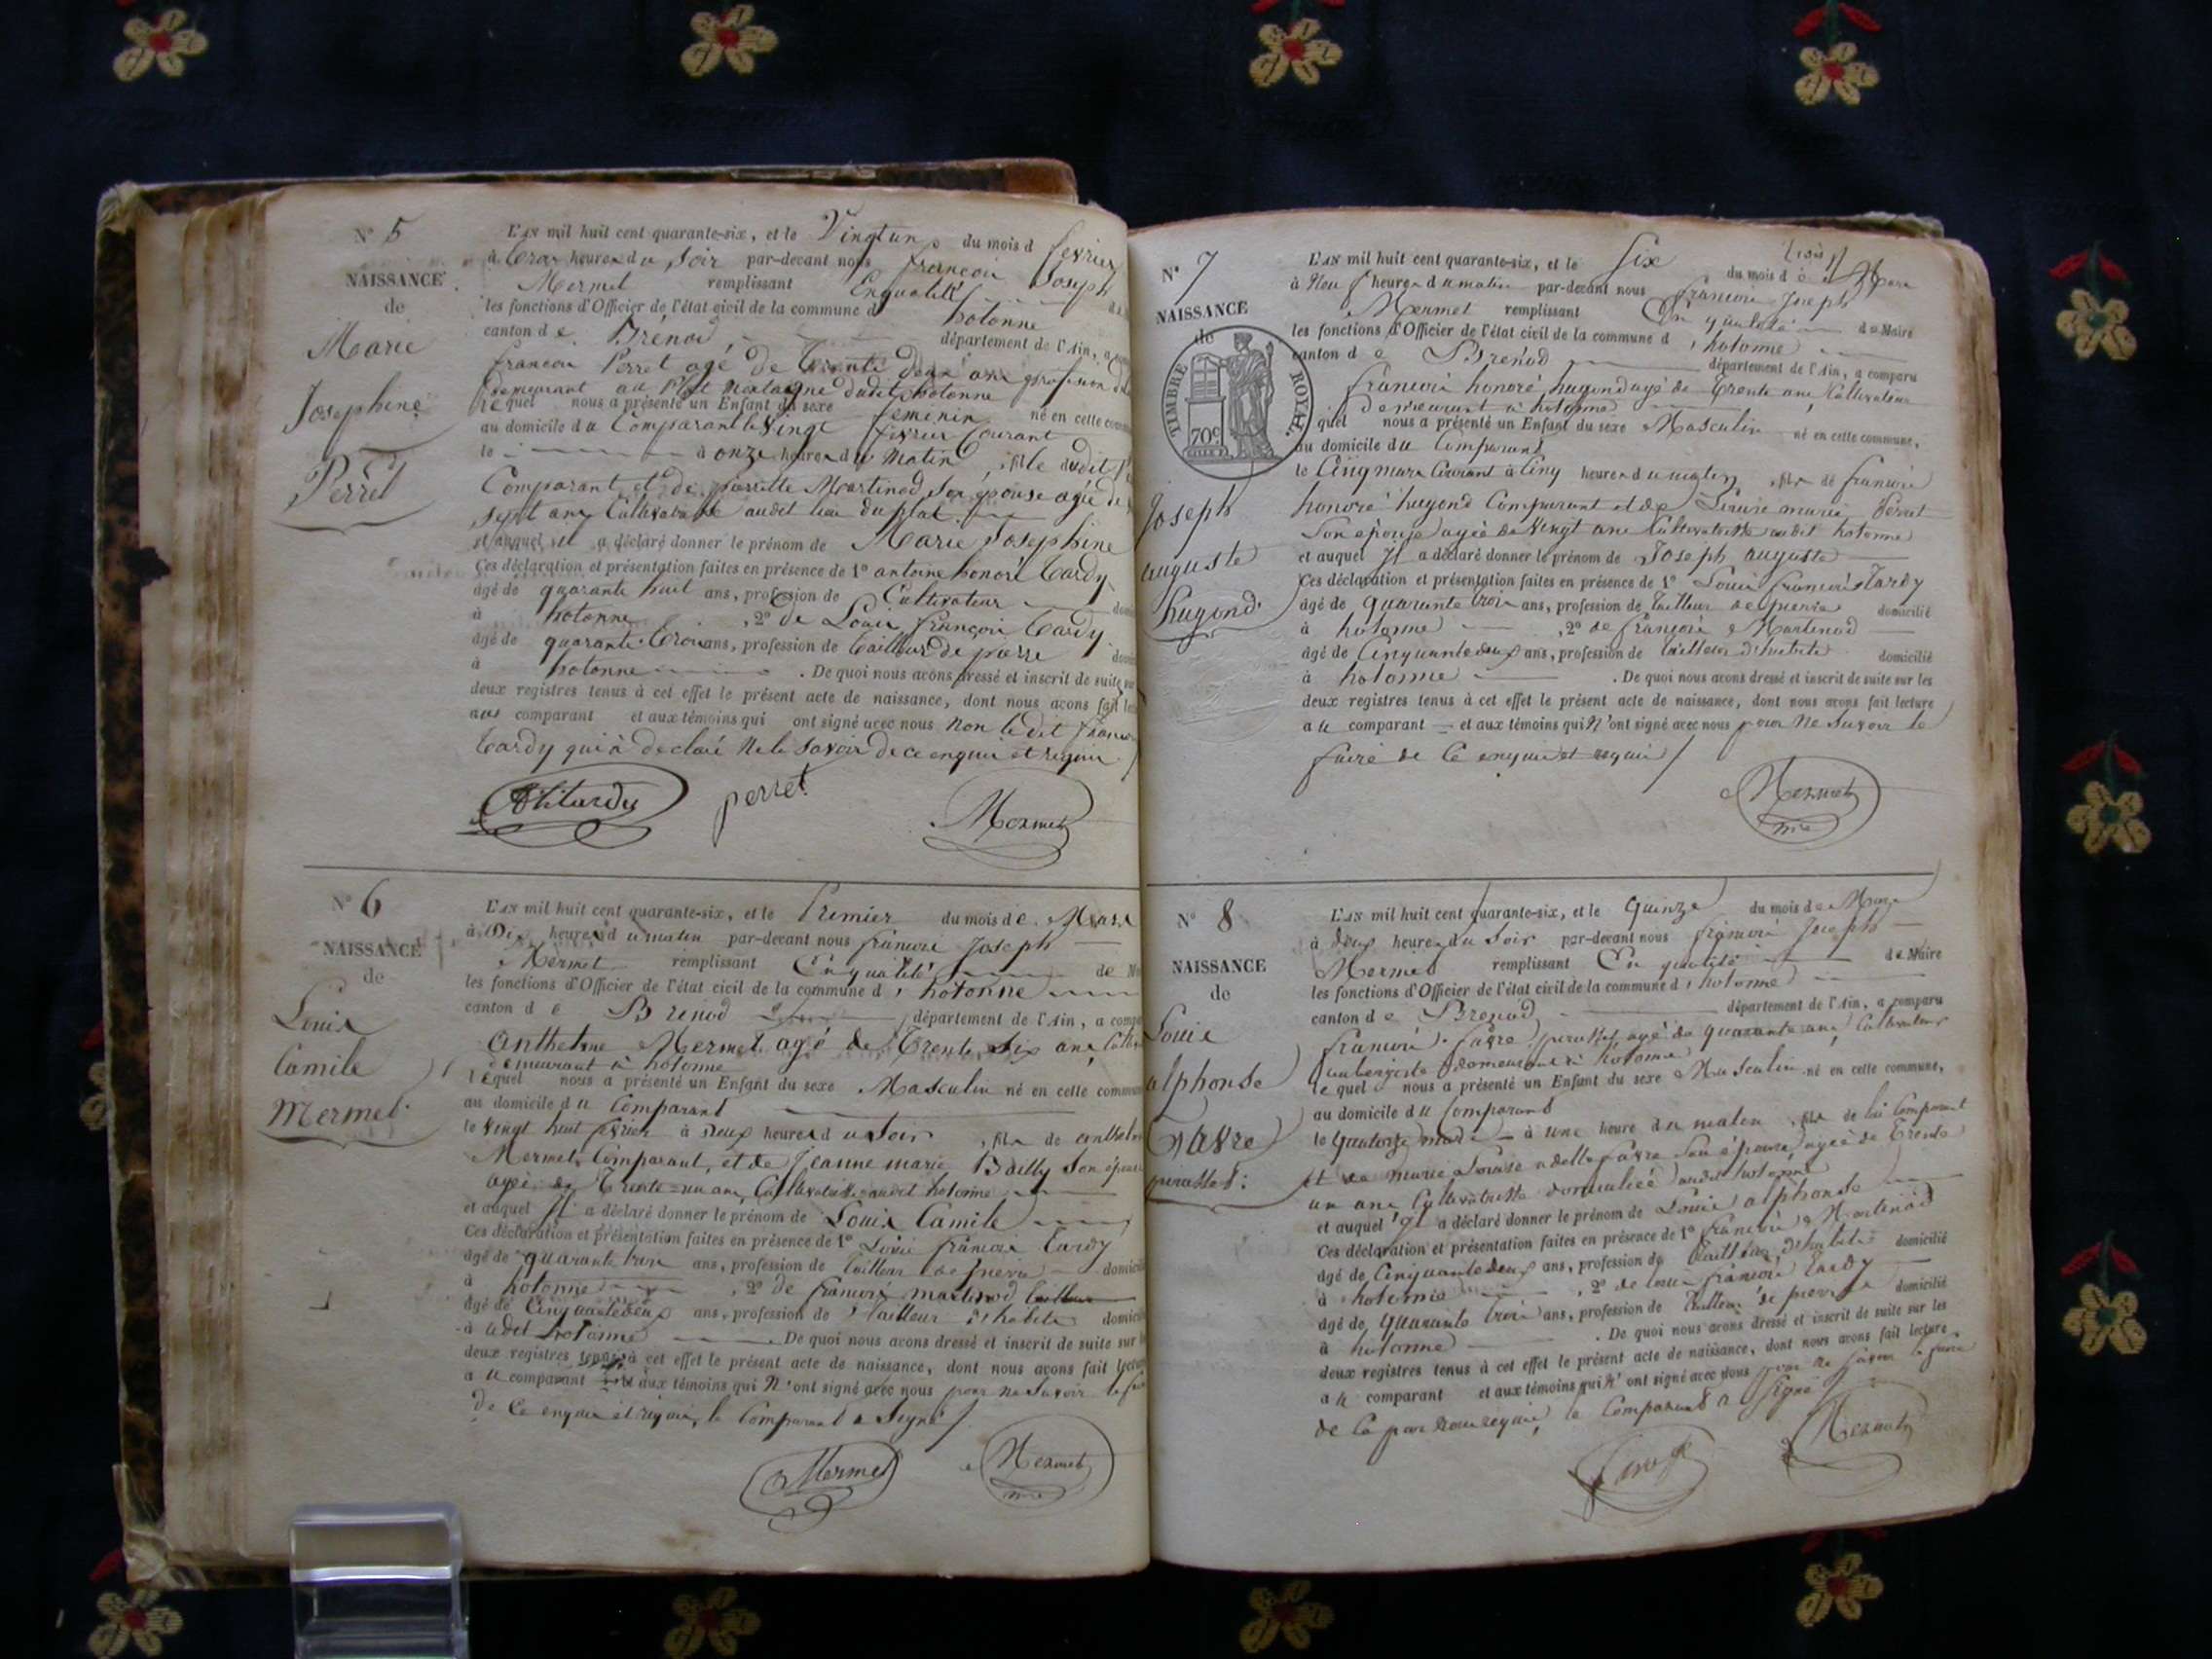 N° 5
NAISSANCE
de
Marie
Josephine
Perret
L'AN mil huit cent quarante-six, et le Vingt un du mois d fevrier
à trois heures du Soir par-devant nous françois Joseph
Mermet remplissant En qualité
les fonctions d'Officier de l'état civil de la commune d hotonne
canton de Brénod département de l'Ain, a
françois Perret agé de trente deux ans profession de
demeurant au dudit hotonne
lequel nous a présenté un Enfant du sexe feminin né en cette
au domicile du Comparant le Vingt fevrier Courant
le à onze heures du Matin, fille dudit
Comparant et de pierrette Martinod Son épouse agée de
sept ans Cultivatrice audit lieu du plat
et auquel il a déclaré donner le prénom de Marie Josephine
Ces déclaration et présentation faites en présence de 1° antoine honoré tardy
âgé de quarante huit ans, profession de Cultivateur
à hotonne, 2° de Louis françois tardy
âgé de quarante trois ans, profession de tailleur de pierre
à hotonne. De quoi nous avons dressé et inscrit de suite sur
deux registres tenus à cet effet le présent acte de naissance, dont nous avons fait
aux comparant et aux témoins qui ont signé avec nous non ledit françois
tardy qui à declaré ne le savoir de ce enquis et requis
perret Mermet
N° 6
NAISSANCE
de
Louis
Camile
Mermet
L'AN mil huit cent quarante-six, et le Premier du mois de Mars
à Dix heures du matin par-devant nous françois Joseph
Mermet remplissant En qualité de
les fonctions d'Officier de l'état civil de la commune d'hotonne
canton de Brénod département de l'Ain, a
Anthelme Mermet agé de Trente Six ans
demeurant à hotonne
lequel nous a présenté un Enfant du sexe Masculin né en cette
au domicile du Comparant
le vingt huit fevrier à Deux heures du Soir, fils de
Mermet Comparant, et de Jeanne marie Bailly Son
agée de Trente un ans, Cultivatrice audit hotonne
et auquel Il a déclaré donner le prénom de Louis Camile
Ces déclaration et présentation faites en présence de 1° Louis françois tardy
âgé de quarante trois ans, profession de tailleur de pierre
à hotonne, 2° de françois martinod
âgé de Cinquante deux ans, profession de tailleur d'habits
à udit hotonne. De quoi nous avons dressé et inscrit de suite sur
deux registres tenus à cet effet le présent acte de naissance, dont nous avons fait
au comparant et aux témoins qui N'ont signé avec nous pour ne Savoir le
de Ce enquis et requis, le Comparant a Signé
Mermet Mermet
N° 7
NAISSANCE
de
TIMBRE ROYAL
70c
Joseph
auguste
hugond
L'AN mil huit cent quarante-six, et le Six du mois de Mars
à Neuf heures du matin par-devant nous françois Joseph
Mermet remplissant En qualité de Maire
les fonctions d'Officier de l'état civil de la commune d'hotonne
canton de Brénod département de l'Ain, a comparu
françois honoré hugond agé de trente ans Cultivateur
Demeurant à hotonne
quel nous a présenté un Enfant du sexe Masculin né en cette commune,
au domicile du Comparant
le Cinq mars Courant à Cinq heures du matin, fils de françois
honoré hugond Comparant et de marie Perret
Son épouse agée de Vingt ans Cultivatrice audit hotonne
et auquel Il a déclaré donner le prénom de Joseph auguste
Ces déclaration et présentation faites en présence de 1° Louis françois Tardy
âgé de quarante trois ans, profession de tailleur de pierre domicilié
à hotonne, 2° de françois Martinod
âgé de Cinquante deux ans, profession de tailleur d'habits domicilié
à hotonne. De quoi nous avons dressé et inscrit de suite sur les
deux registres tenus à cet effet le présent acte de naissance, dont nous avons fait lecture
au comparant et aux témoins qui N'ont signé avec nous pour Ne Savoir le
faire de Ce enquis et requis
Mermet
N° 8
NAISSANCE
de
Louis
alphonse
favre
L'AN mil huit cent quarante-six, et le Quinze du mois de Mars
à deux heures du Soir par-devant nous françois Joseph
Mermet remplissant En qualité de Maire
les fonctions d'Officier de l'état civil de la commune d'hotonne
canton de Brénod département de l'Ain, a comparu
françois favre agé de quarante ans, Cultivateur
aubergiste demeurant à hotonne
lequel nous a présenté un Enfant du sexe Masculin né en cette commune,
au domicile du Comparant
le Quatorze à une heure du matin, fils de lui Comparant
et de marie Louise favre Son épouse agée de Trente
un ans Cultivatrice domiciliée audit hotonne
et auquel Il a déclaré donner le prénom de Louis alphonse
Ces déclaration et présentation faites en présence de 1° françois Martinod
âgé de Cinquante deux ans, profession de tailleur d'habits domicilié
à hotonne, 2° de Louis françois tardy
âgé de quarante trois ans, profession de tailleur de pierre domicilié
à hotonne. De quoi nous avons dressé et inscrit de suite sur les
deux registres tenus à cet effet le présent acte de naissance, dont nous avons fait lecture
au comparant et aux témoins qui N'ont signé avec nous pour ne Savoir le faire
de Ce par nous requis, le Comparant a Signé
Mermet